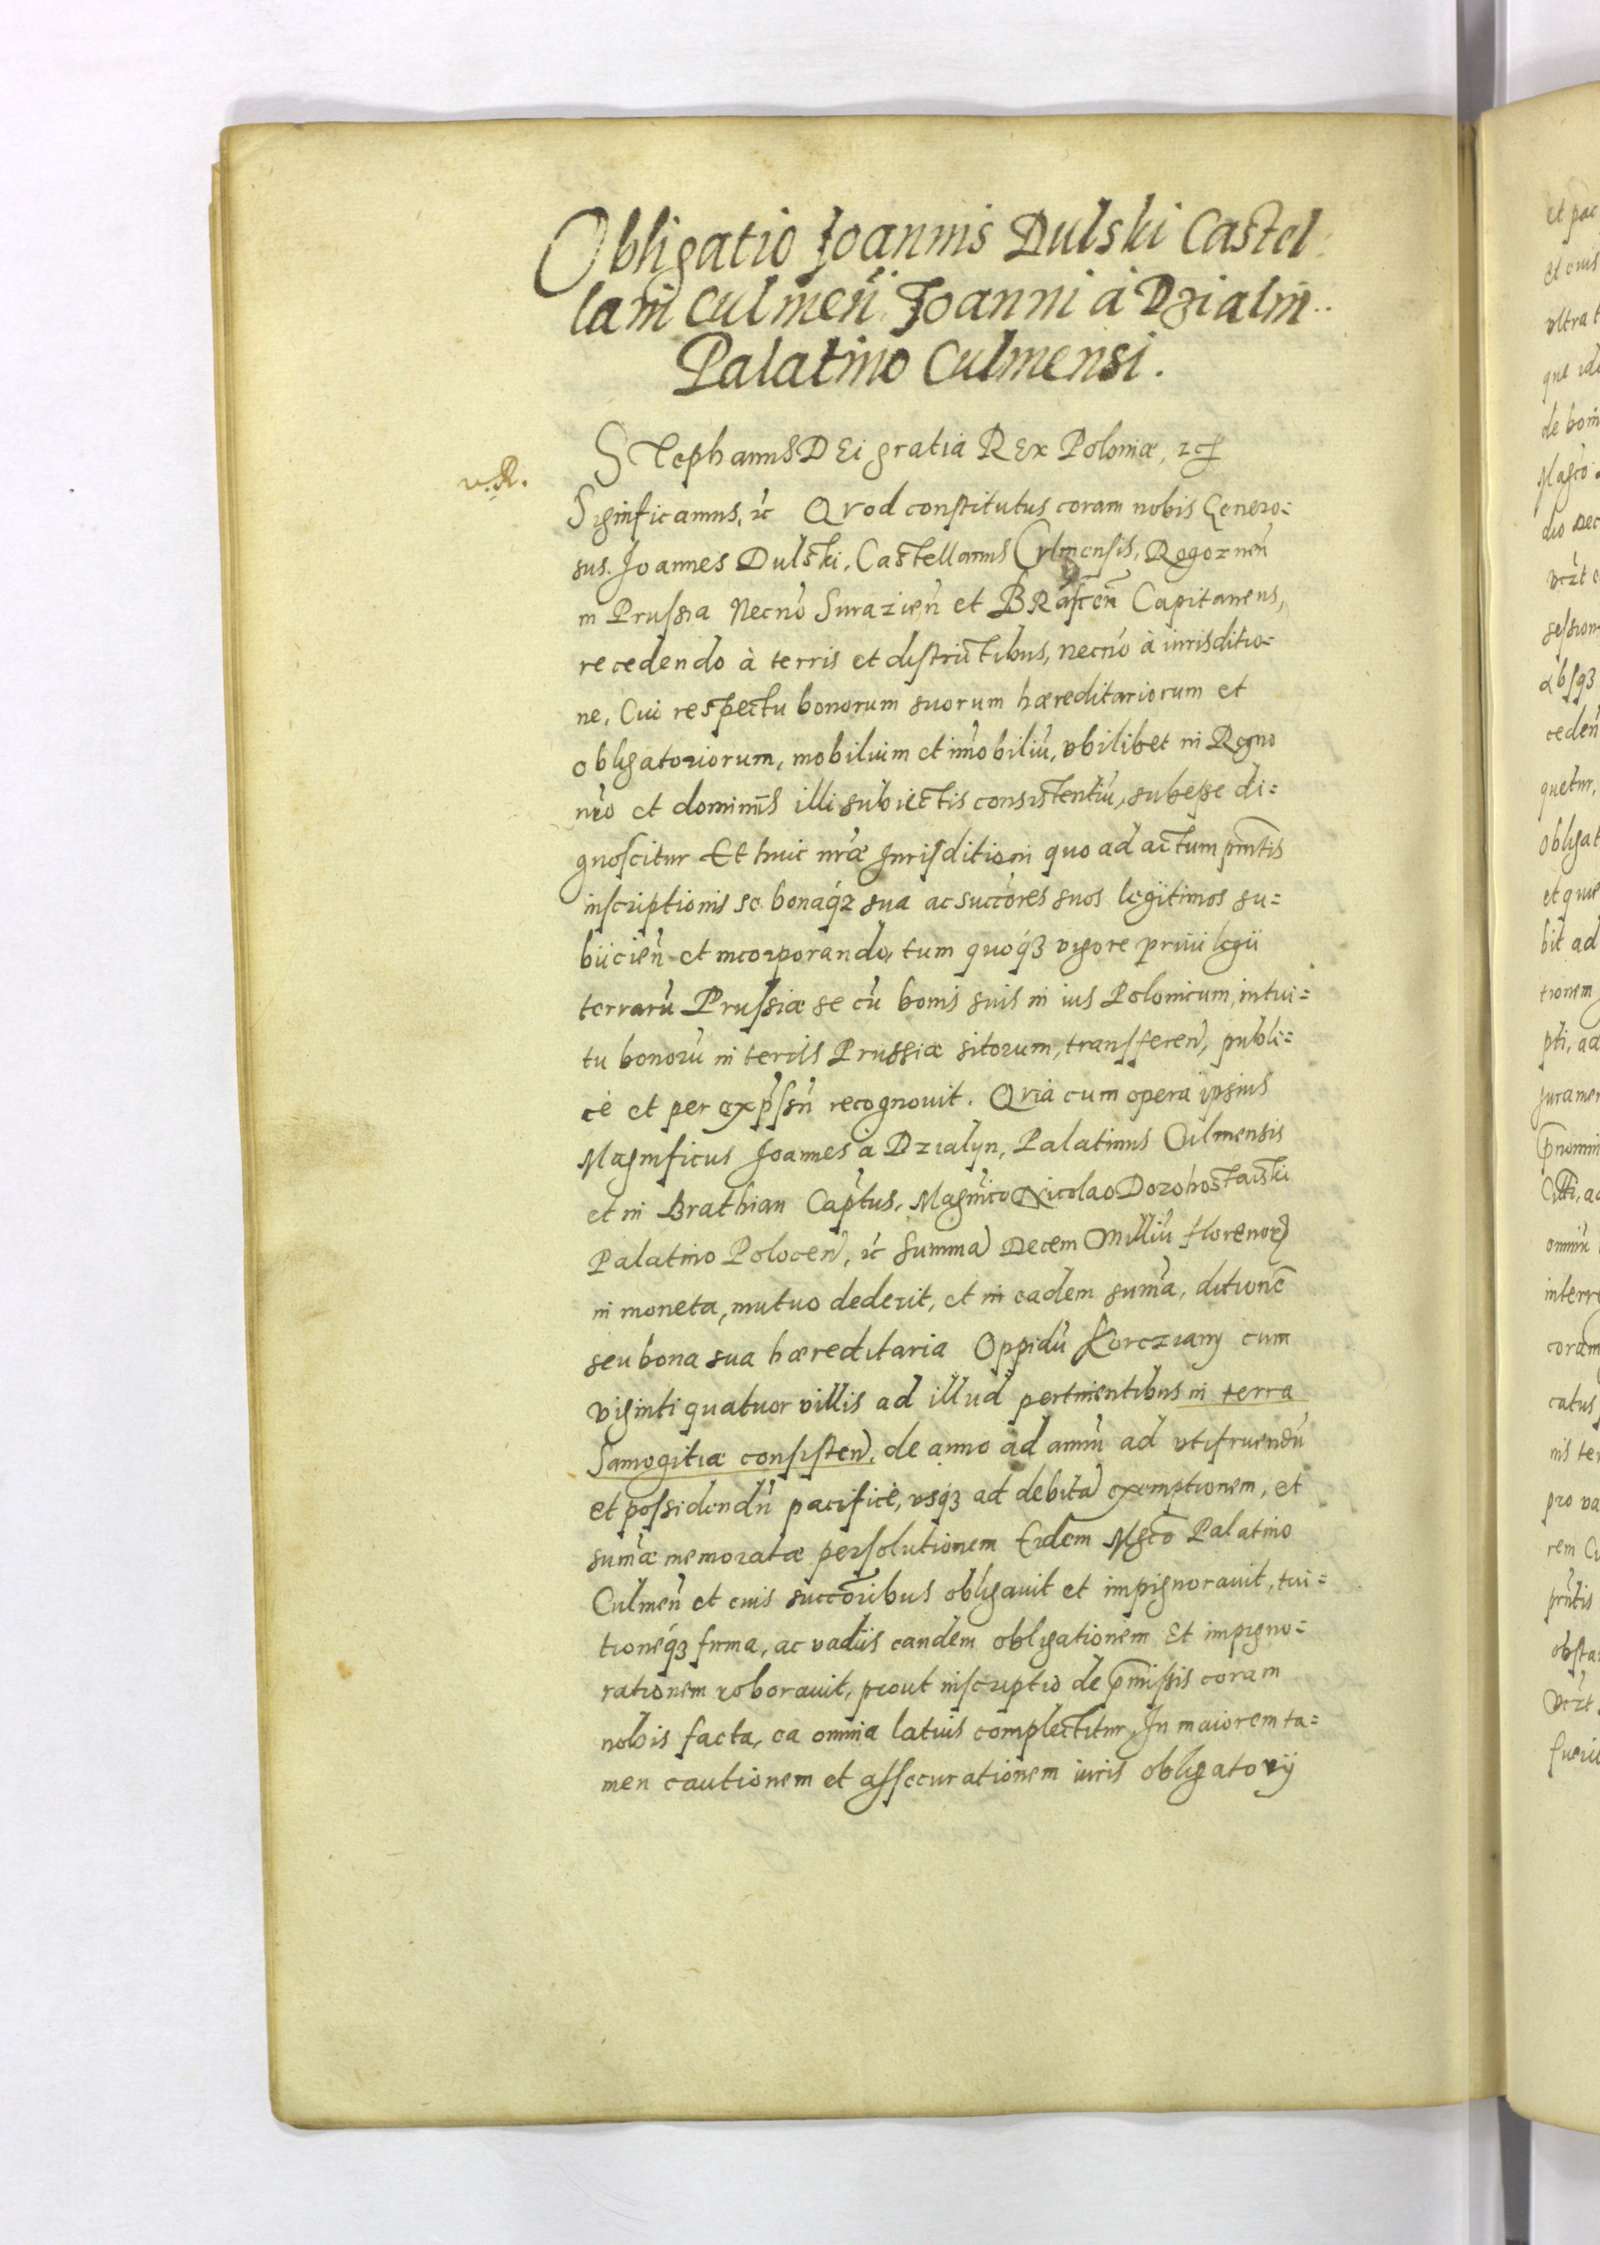 Obligatio Joannis Dulski Castel
lani Culmeñ Joanni à Dzialin
Palatino Culmensi.
v. R.
Stephanus DEi gratia REx Poloniæ, &c
Significamus, &c Qvod constitutus coram nobis Genero=
sus. Joannes Dulski, Castellanus Culmensis, Rogoznen̄
in Prussia Necnō Surazien̄ et BRasceñ Capitaneus,
recedendo à terris et districtibus, necnō à iurisditio=
ne, Cui respectu bonorum suorum hæreditariorum et
obligatoriorum, mobilium et im̄obiliū, vbilibet in Regno
nr̄o et dominiis illi subiectis consistentiū, subesse di=
gnoscitur Et huic nr̄æ Jurisditioni quo ad actum pn̄tis
inscriptionis se bonaq́ȝ sua ac succōres suos legitimos su=
biicien̄ et incorporando, tum quoq́ȝ vigore priuilegii
terrarū Prussiæ se cū bonis suis in ius Polonicum, intui=
tu bonorū in terris Prussiæ sitorum, transferen̄, publi=
cè et per exp̄ssū recognouit. Qvia cum opera ipsius
Magnificus Joannes à Dzialyn, Palatinus Culmensis
et in Brathian Cap̄tus, Magn̄ico Nicolao Dorohostaiski
Palatino Polocen̄, &c Summā Decem Milliū florenorȝ
in moneta, mutuo dederit, et in eadem sum̄a, ditionē
seu bona sua hæreditaria Oppidū Korcziany cum
viginti quatuor villis ad illud pertinentibus in terra
Samogitiæ consisten̄, de anno ad annū ad vtifruendū
et possidendū pacificè, vsq́ȝ ad debitā exemptionem, et
sum̄æ memoratæ persolutionem Eidem Mgcō Palatino
Culmen̄ et eius succōribus obligauit et impignorauit, tui=
tioneq́ȝ firma, ac vadiis eandem obligationem Et impigno=
rationem roborauit, prout inscriptio de p̄missis coram
nobis facta, ea omnia latius complectitur, In maiorem ta=
men cautionem et assecurationem iuris obligatorij